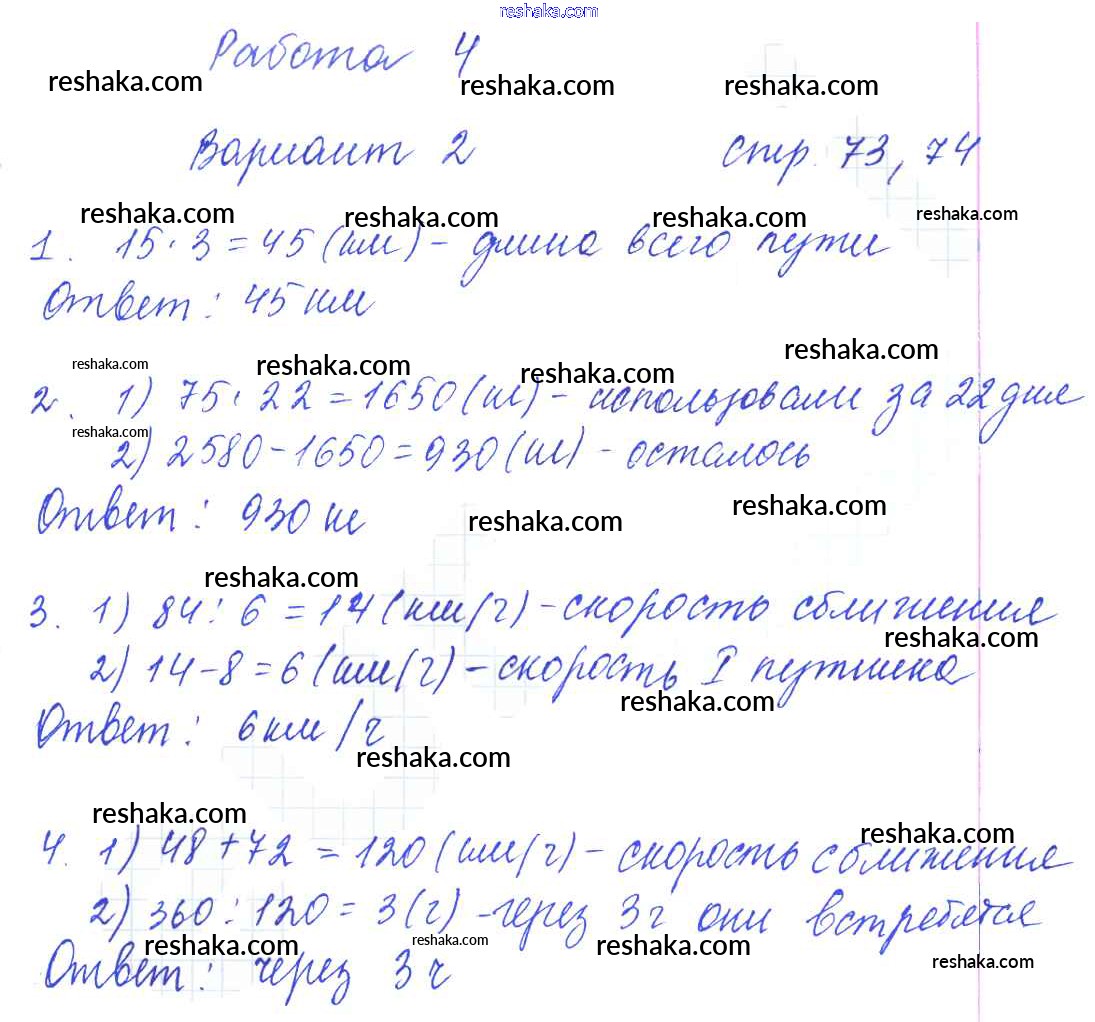 reshaka.com
Работа 4
reshaka.com reshaka.com reshaka.com
Вариант 2 стр. 73, 74
reshaka.com reshaka.com reshaka.com reshaka.com
1. 15·3=45 (км) - длина всего пути
Ответ: 45 км
reshaka.com reshaka.com reshaka.com reshaka.com
2. 1) 75·22=1650 (кг) - использовали за 22 дня
reshaka.com
2) 2580-1650=930 (кг) - осталось
Ответ: 930 кг
reshaka.com reshaka.com
reshaka.com
3. 1) 84:6=14 (км/ч) - скорость сближения
reshaka.com
2) 14-8=6 (км/ч) - скорость I путника
reshaka.com
Ответ: 6 км/ч
reshaka.com
reshaka.com reshaka.com
4. 1) 48+72=120 (км/ч) - скорость сближения
2) 360:120=3 (ч) - через 3 ч они встретятся
reshaka.com reshaka.com reshaka.com reshaka.com
Ответ: через 3 ч